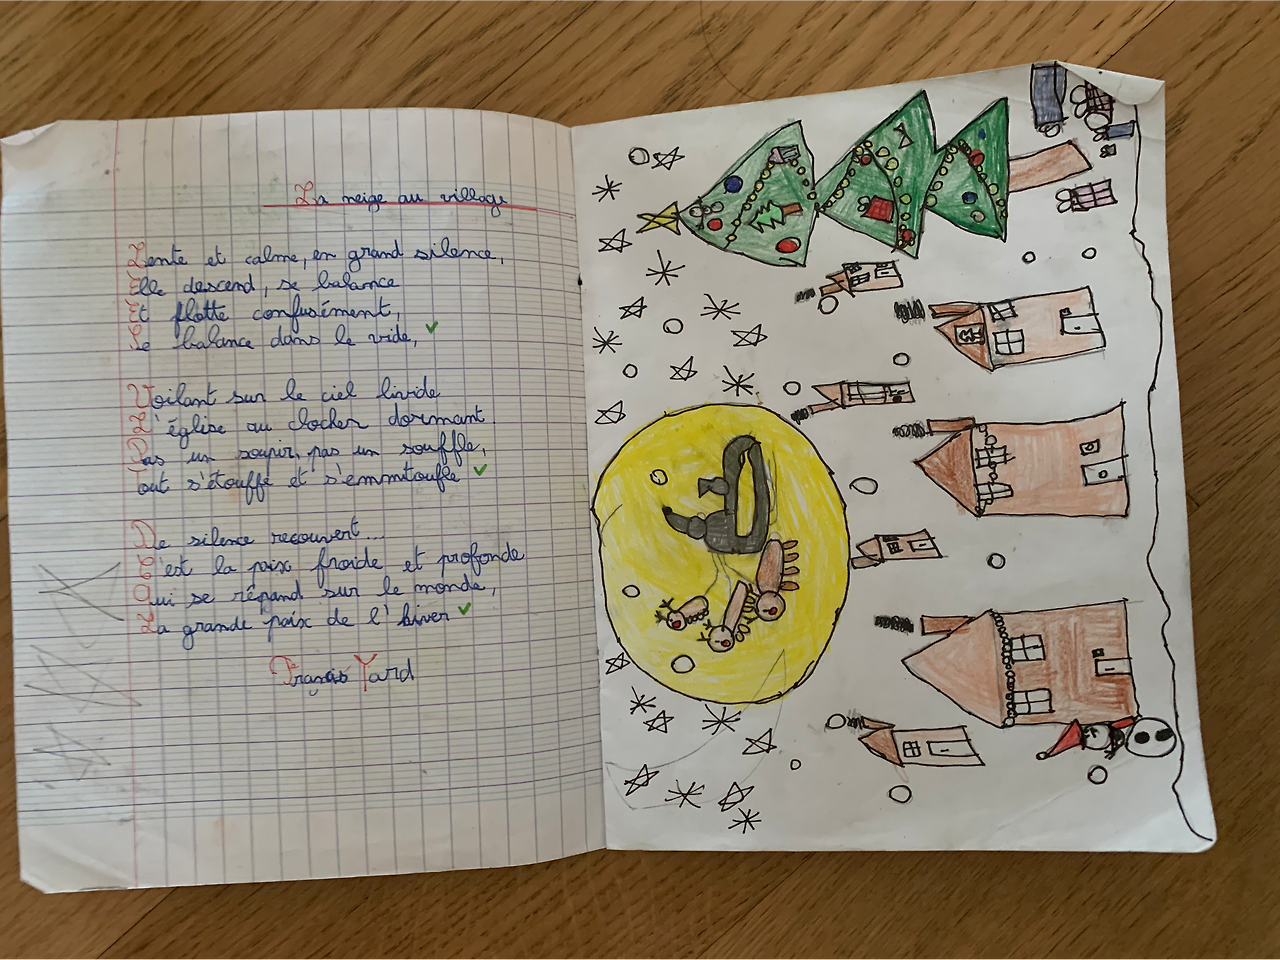 La neige au village
Lente et calme, en grand silence,
Elle descend, se balance
Et flotte confusément,
Se balance dans le vide,
Voilant sur le ciel livide
L'église au clocher dormant.
Pas un soupir, pas un souffle,
Tout s'étouffe et s'emmitoufle
De silence recouvert...
C'est la paix froide et profonde
Qui se répand sur le monde,
La grande paix de l'hiver
François Yard